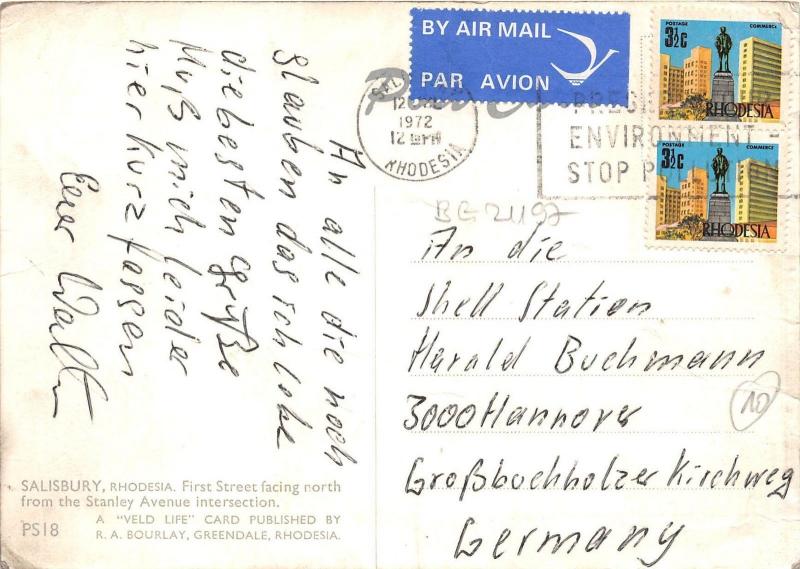 BY AIR MAIL
PAR AVION
POSTAGE COMMERCE
3½c
RHODESIA
POSTAGE COMMERCE
3½c
RHODESIA
12
1972
12 PM
RHODESIA
ENVIRONMENT
STOP
BG 21197
An alle die noch
glauben das ich lebe
die besten Grüße
Muß mich leider
hier kurz fassen
Euer Walter
An die
Shell Station
Harald Buchmann
3000 Hannover
Großbuchholzer Kirchweg
Germany
10
SALISBURY, RHODESIA. First Street facing north
from the Stanley Avenue intersection.
PS18
A "VELD LIFE" CARD PUBLISHED BY
R. A. BOURLAY, GREENDALE, RHODESIA.